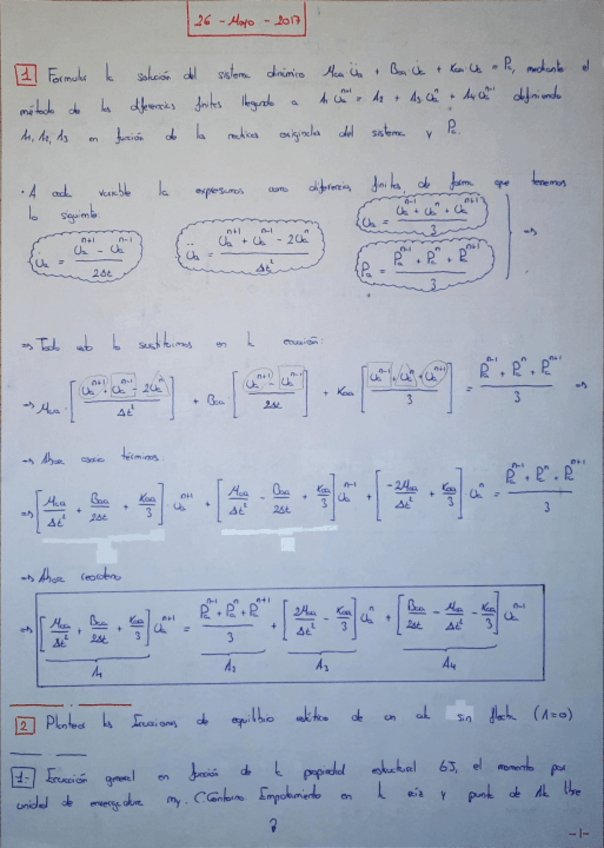 26 - Mayo - 2017
1 Formular la solución del sistema dinámico Maa Üa + Baa U̇a + Kaa Ua = Pa, mediante el
método de las diferencias finitas llegando a A1 Ua^n+1 = A2 + A3 Ua^n + A4 Ua^n-1 definiendo
A1, A2, A3 en función de las matrices originales del sistema y Pa.
· A cada variable la expresamos como diferencias finitas, de forma que tenemos
lo siguiente:
U̇a = (Ua^n+1 - Ua^n-1) / 2Δt    Üa = (Ua^n+1 + Ua^n-1 - 2Ua^n) / Δt²    Ua = (Ua^n-1 + Ua^n + Ua^n+1) / 3 ⇒
Pa = (Pa^n-1 + Pa^n + Pa^n+1) / 3
⇒ Todo esto lo sustituimos en la ecuación:
⇒ Maa · [(Ua^n+1 + Ua^n-1 - 2Ua^n) / Δt²] + Baa · [(Ua^n+1 - Ua^n-1) / 2Δt] + Kaa [(Ua^n-1 + Ua^n + Ua^n+1) / 3] = (Pa^n-1 + Pa^n + Pa^n+1) / 3 ⇒
⇒ Ahora asocio términos:
⇒ [Maa/Δt² + Baa/2Δt + Kaa/3] · Ua^n+1 + [Maa/Δt² - Baa/2Δt + Kaa/3] Ua^n-1 + [-2Maa/Δt² + Kaa/3] · Ua^n = (Pa^n-1 + Pa^n + Pa^n+1) / 3
⇒ Ahora reordeno
⇒ [Maa/Δt² + Baa/2Δt + Kaa/3] Ua^n+1 = (Pa^n-1 + Pa^n + Pa^n+1) / 3 + [2Maa/Δt² - Kaa/3] Ua^n + [Baa/2Δt - Maa/Δt² - Kaa/3] Ua^n-1
A1 A2 A3 A4
2 Plantear las Ecuaciones de equilibrio estático de un ala sin flecha (Λ=0)
1- Ecuación general en función de la propiedad estructural GJ, el momento por
unidad de envergadura my. C.Contorno Empotramiento en la raíz y punta de Ala libre
-1-